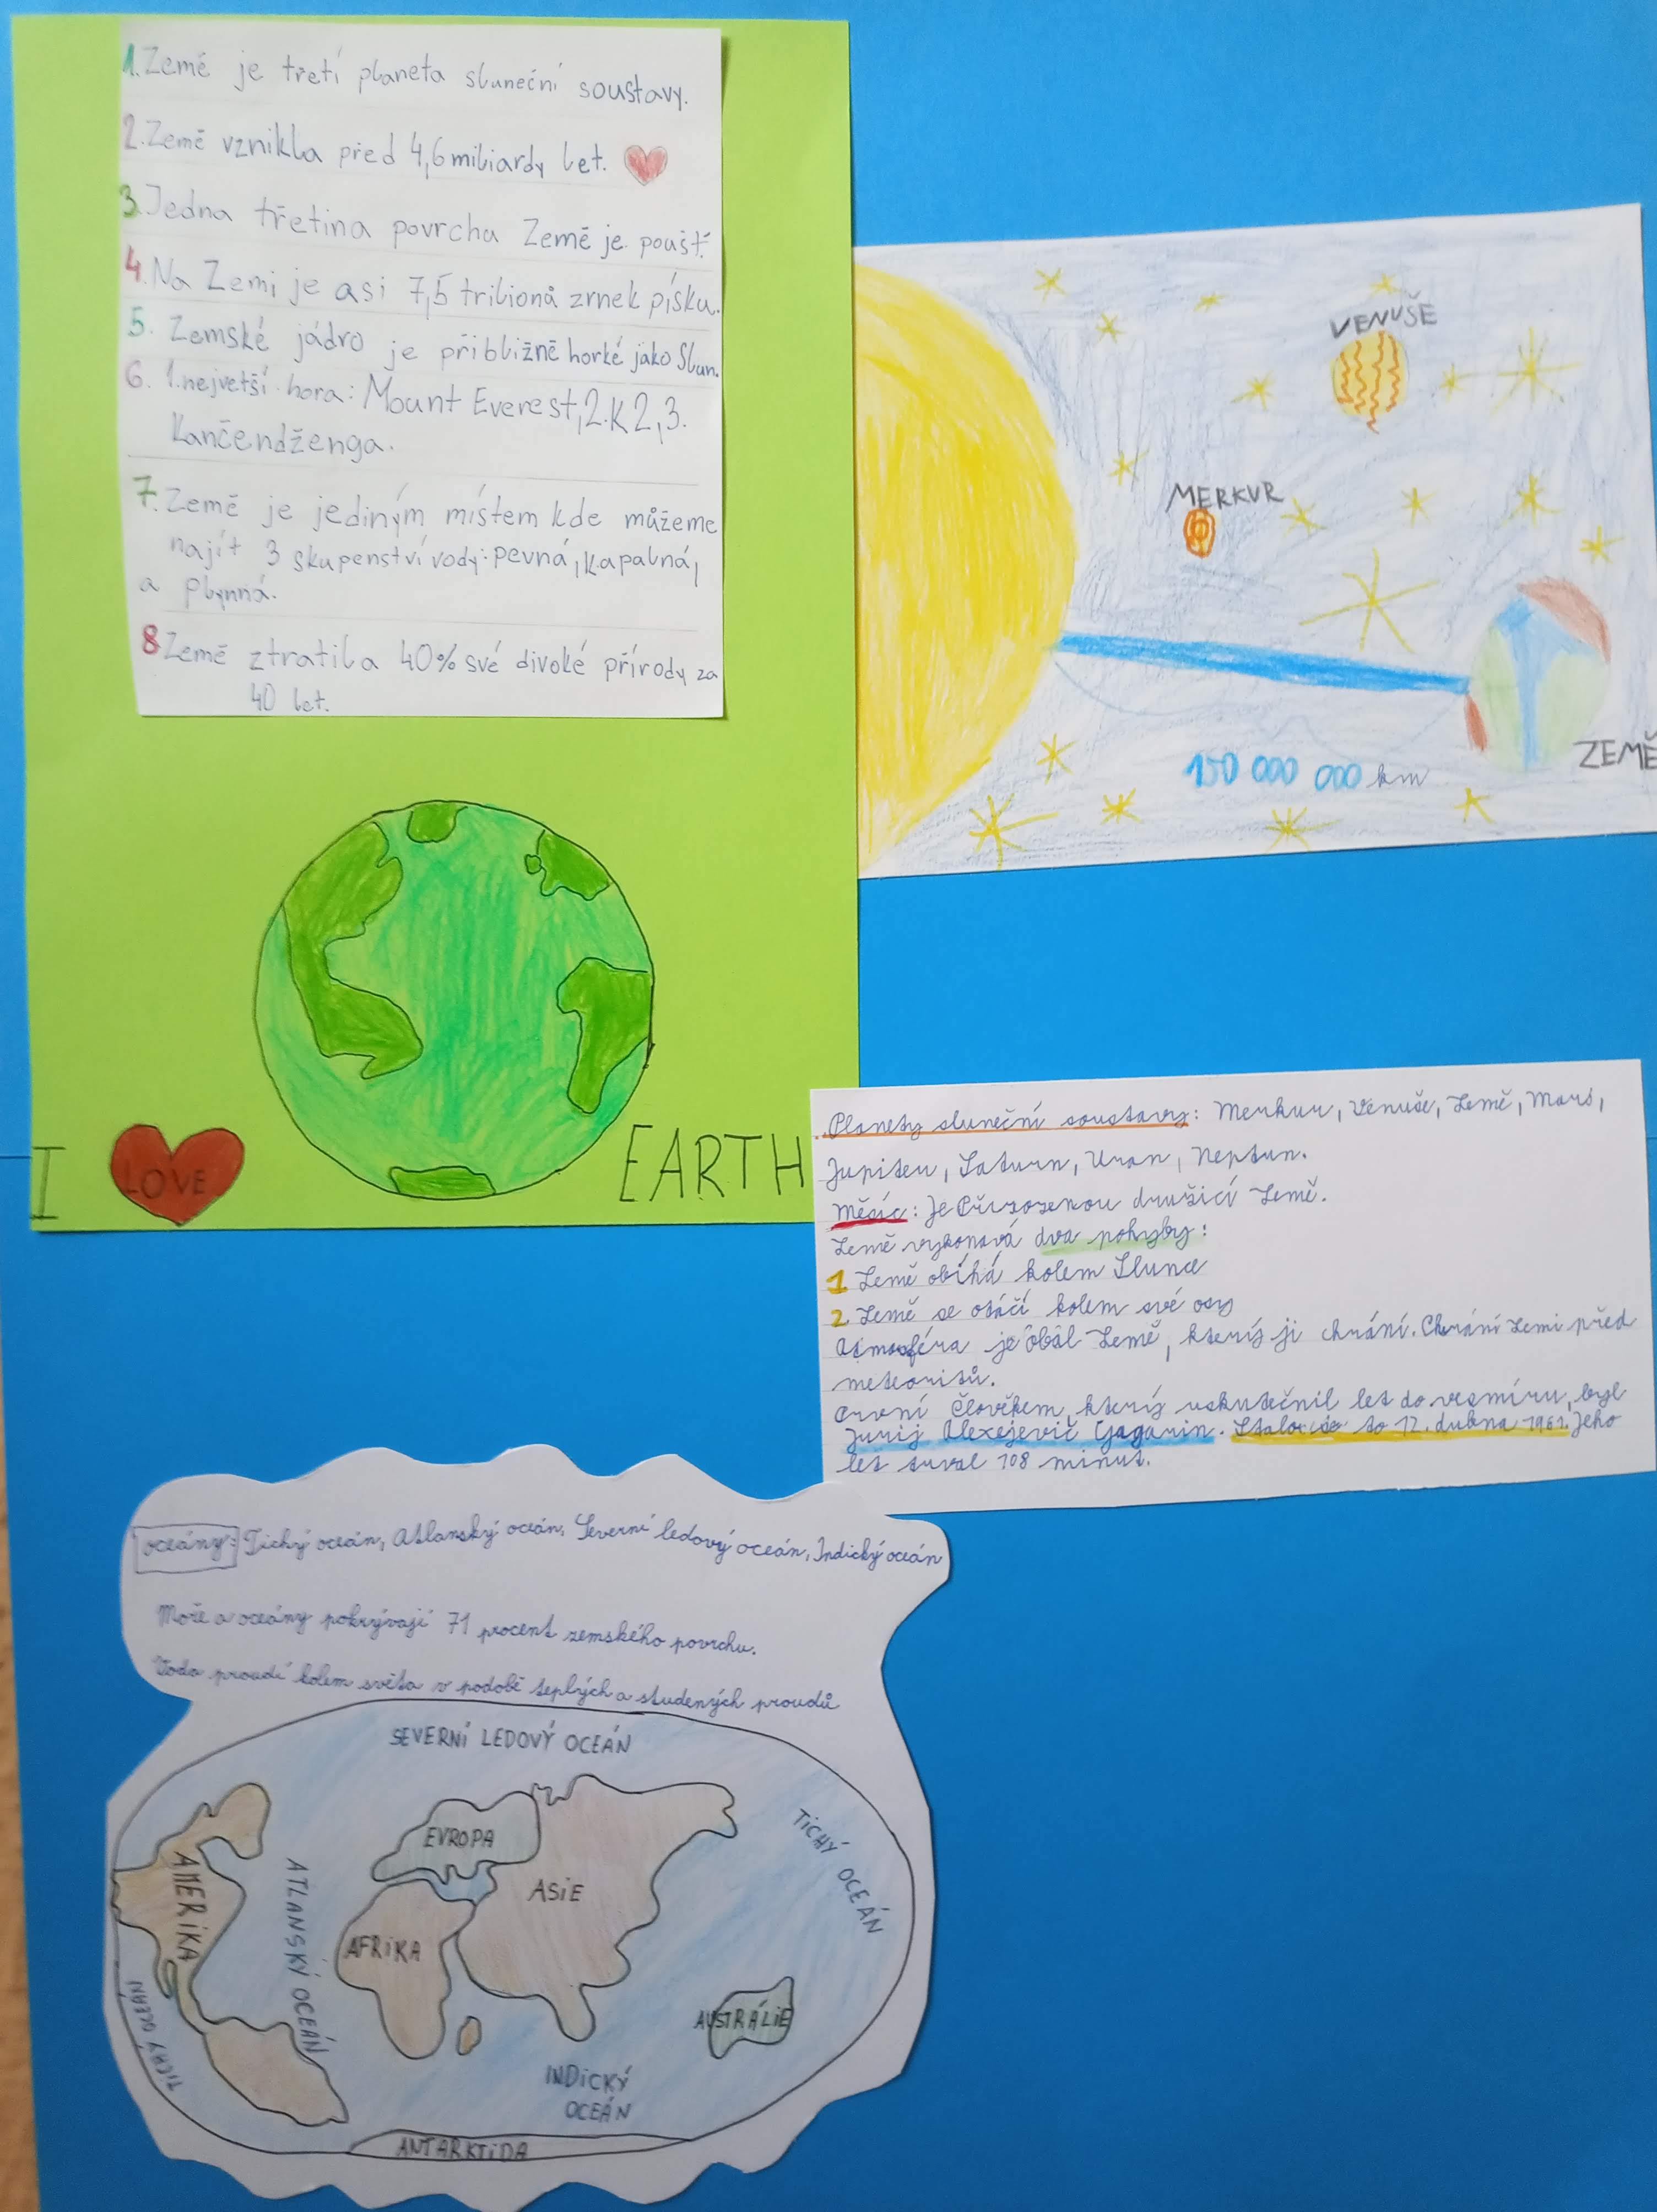 1. Země je třetí planeta sluneční soustavy.
2. Země vznikla před 4,6 miliardy let.
3. Jedna třetina povrchu Země je poušť.
4. Na Zemi je asi 7,5 trilionů zrnek písku.
5. Zemské jádro je přibližně horké jako Slun.
6. 1. největší hora: Mount Everest, 2. K2, 3.
Kančendženga.
7. Země je jediným místem kde můžeme
najít 3 skupenství vody: pevná, kapalná,
a plynná.
8 Země ztratila 40% své divoké přírody za
40 let.
I LOVE EARTH
VENUŠE
MERKUR
ZEMĚ
150 000 000 km
Planety sluneční soustavy: Merkur, Venuše, Země, Mars,
Jupiter, Saturn, Uran, Neptun.
Měsíc: Je Přirozenou družicí Země.
Země vykonává dva pohyby:
1 Země obíhá kolem Slunce
2 Země se otáčí kolem své osy
Atmosféra je obal Země, který ji chrání. Chrání Zemi před
meteoritů.
První Člověkem, který uskutečnil let do vesmíru, byl
Jurij Alexejevič Gagarin. Stalo se to 12. dubna 1961. Jeho
let trval 108 minut.
oceány: Tichý oceán, Atlanský oceán, Severní ledový oceán, Indický oceán
Moře a oceány pokrývají 71 procent zemského povrchu.
Voda proudí kolem světa v podobě teplých a studených proudů
SEVERNÍ LEDOVÝ OCEÁN
EVROPA
TICHÝ OCEÁN
AMERIKA
ATLANSKÝ OCEÁN
ASIE
AFRIKA
TICHÝ OCEÁN
AUSTRÁLIE
INDICKÝ
OCEÁN
ANTARKTIDA